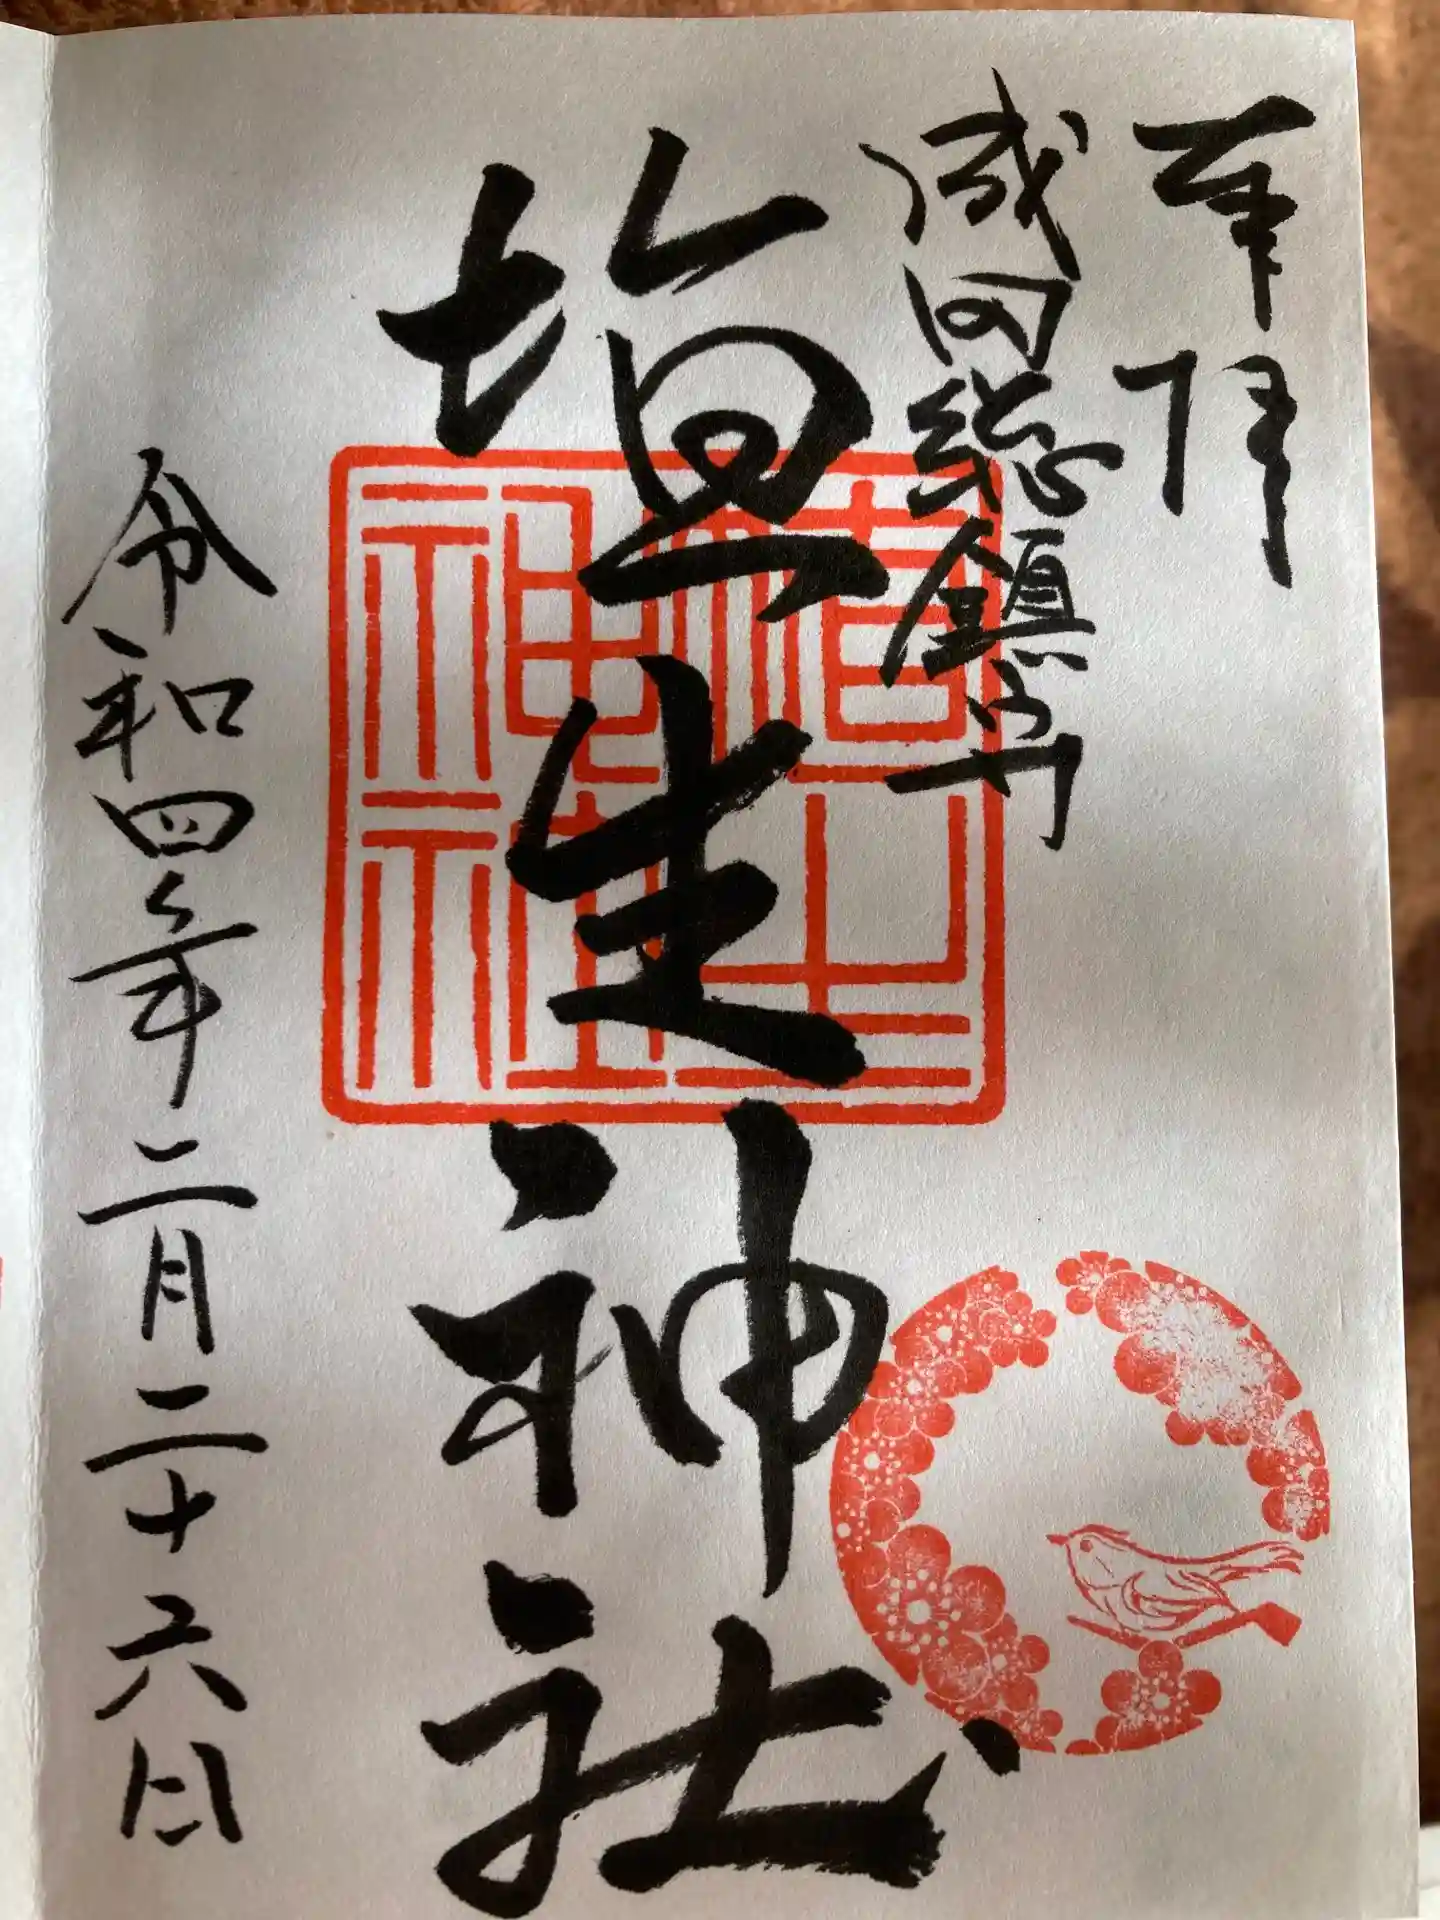 奉拝
成田総鎮守
埴生神社
令和四年二月二十六日
埴生
神社